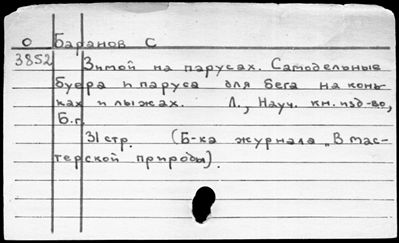 О Баранов С
3852 Зимой на парусах. Самодельные
буера и паруса для бега на конь-
ках и лыжах. Л., Науч. кн. изд-во,
Б.г.
31 стр. (Б-ка журнала „В мас-
терской природы).